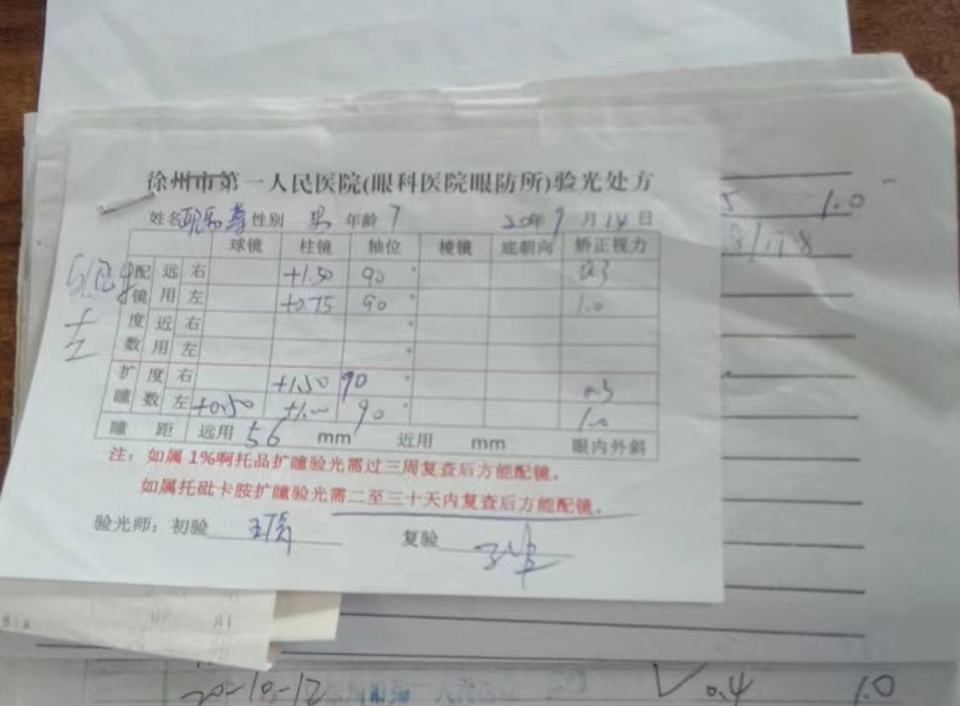 徐州市第一人民医院(眼科医院眼防所)验光处方
姓名 性别 男 年龄 7 20 年 9 月 14 日
球镜 柱镜 轴位 棱镜 底朝向 矫正视力
配 远 右 +1.50 90° 0.3
镜 用 左 +0.75 90 1.0
度 近 右 °
数 用 左 °
扩 度 右 +1.50 90° 0.3
瞳 数 左 +0.50 +1.00 90° 1.0
瞳 距 远用 56 mm 近用 mm 眼内外斜
注：如属1%啊托品扩瞳验光需过三周复查后方能配镜。
如属托砒卡胺扩瞳验光需二至三十天内复查后方能配镜。
验光师：初验 复验
左
5 1.0
20-10-12 0.4 1.0